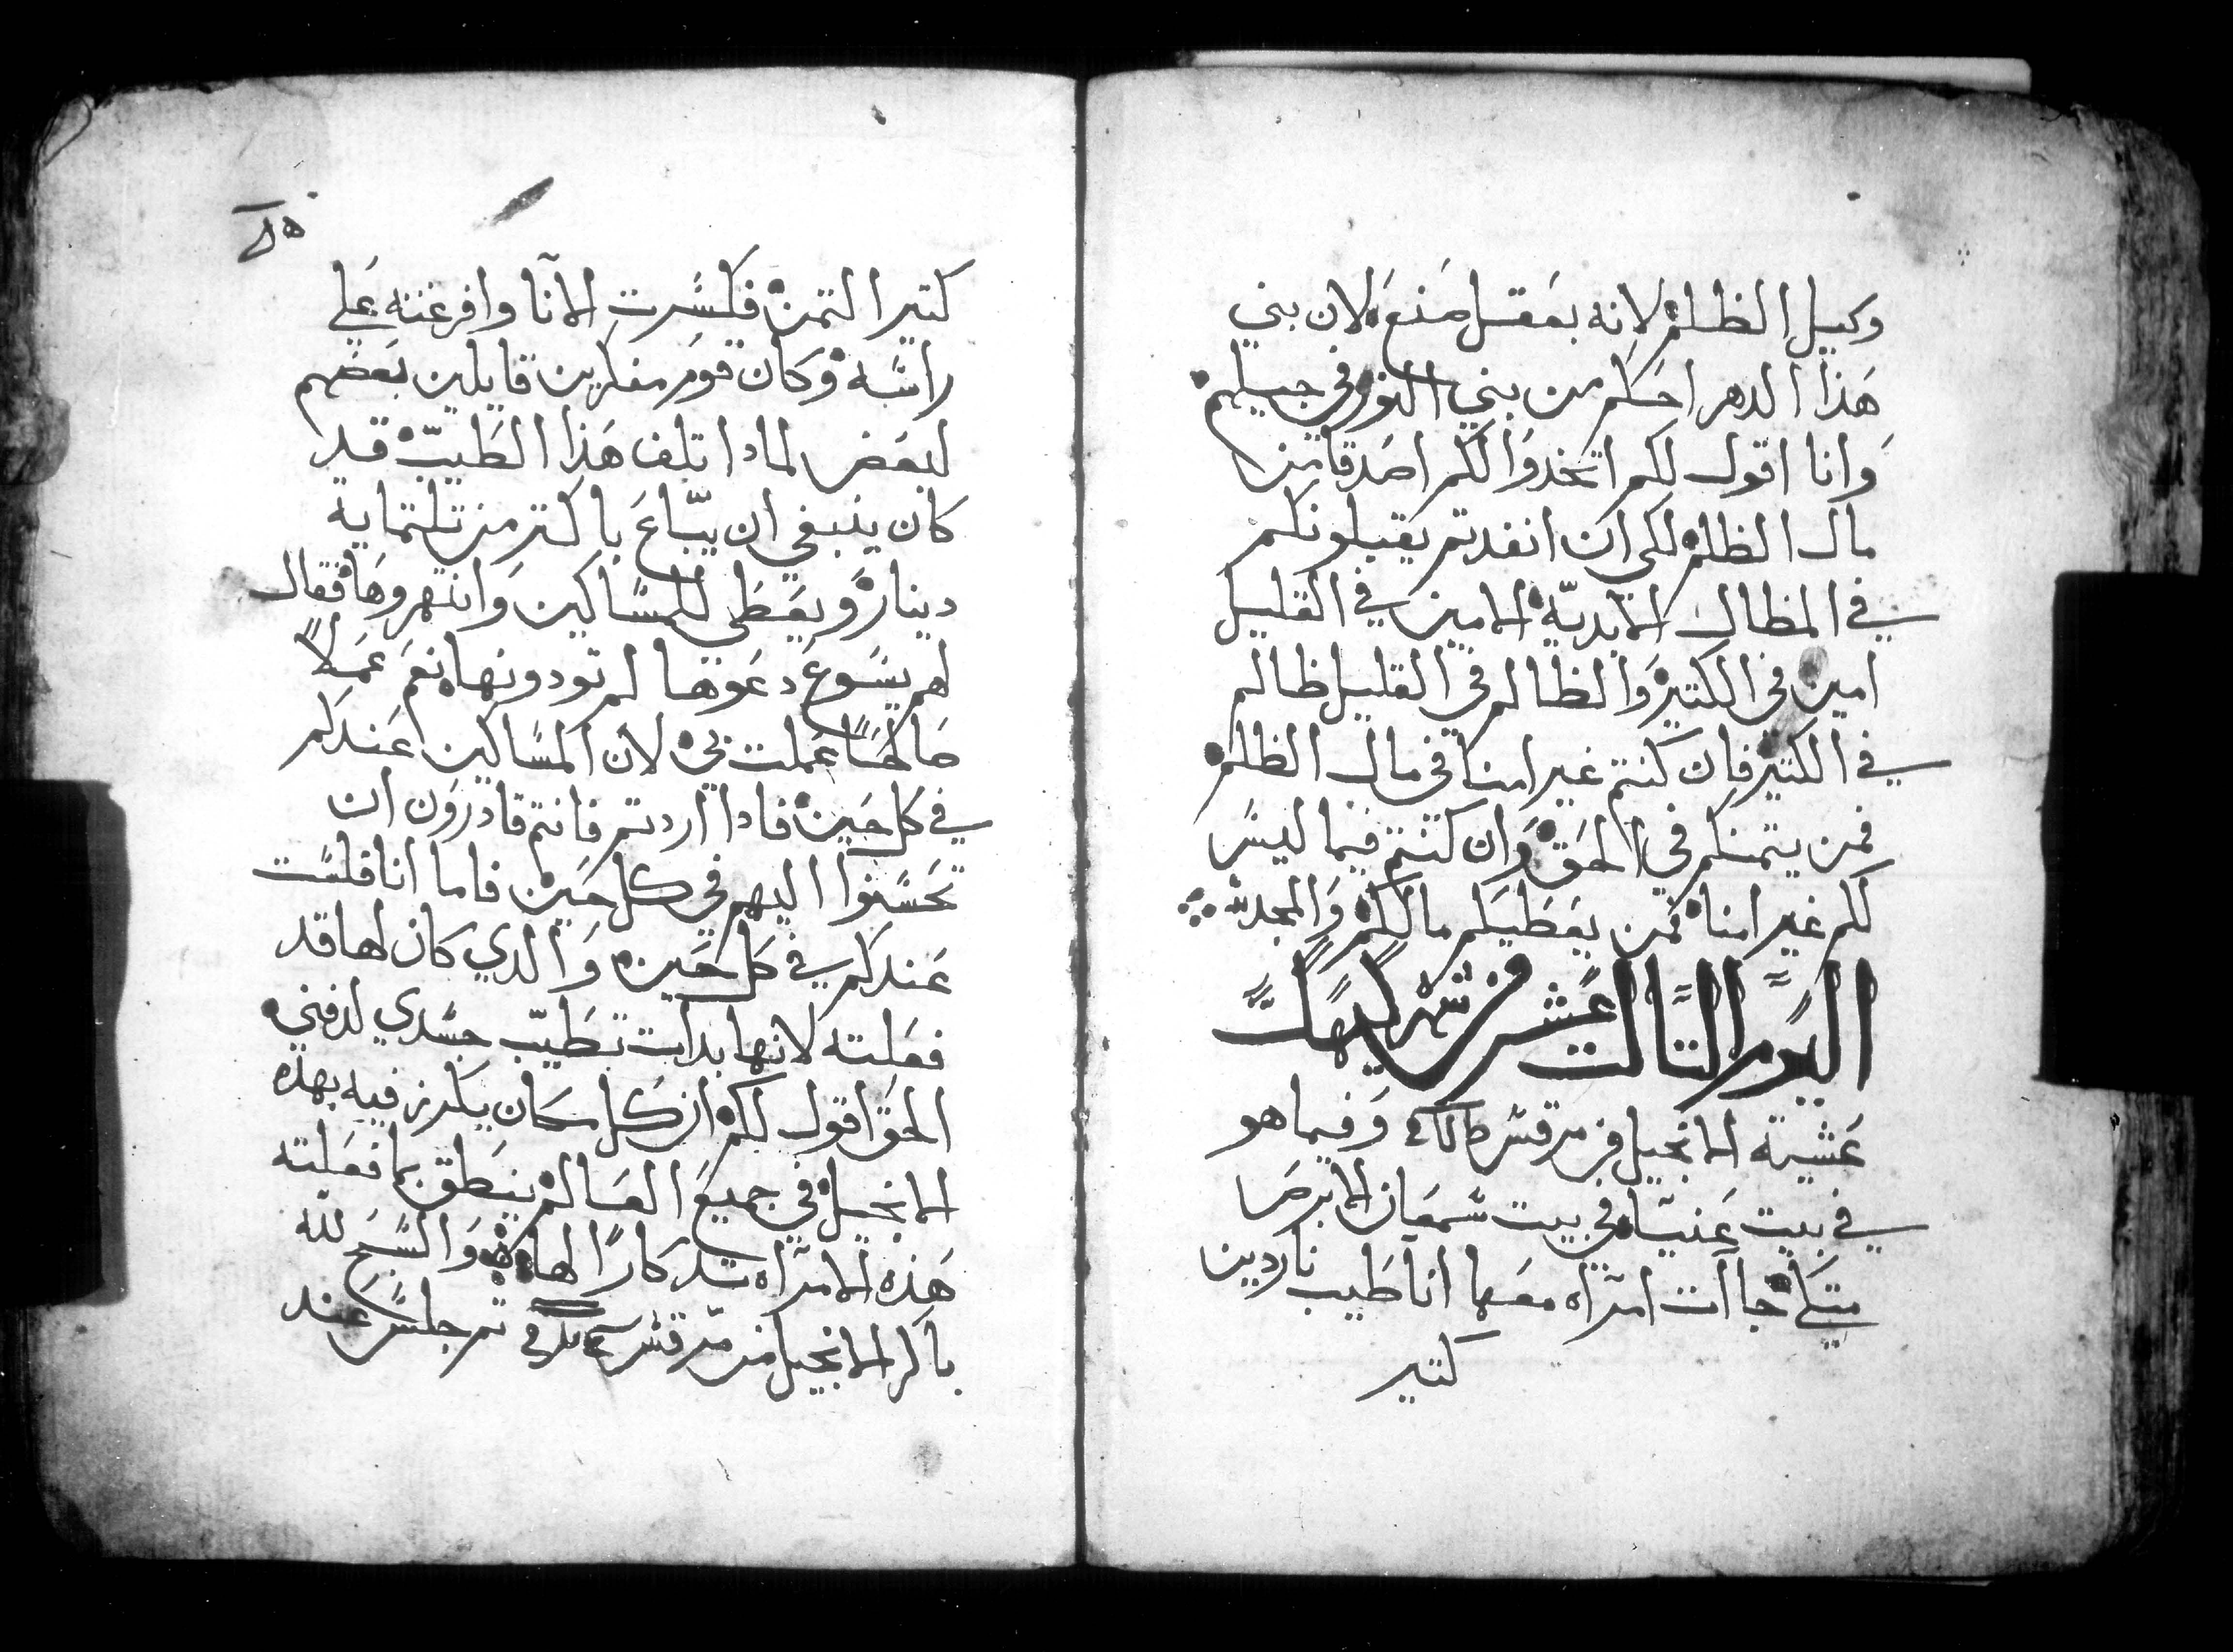 وكيل الظلم لانه بعقل صنع لان بني
هذا الدهر احكم من بني النور في جيلهم
وانا اقول لكم اتخدوا لكم اصدقا من
مال الظلم لكي ان انفدتم يقبلونكم
في المظال الابديّة الامين في القليل
امين في الكتير والظالم في القليل ظالم
في الكتير فان كنتم غير امنا في مال الظلم
فمن يتمنكم في الحق وان كنتم فيما ليس
لكم غير امنا فمن يعطيكم مالكم والمجد لله
اليوم التالت عشر من شهر كيهك
عشية الانجيل من مرقس وفيما هو
في بيت عنيا في بيت سمعان الابرص
متكي جاآت امرآه معها انا طيب ناردين
كتير
كتير التمن فكسرت الآنا وافرغته علي
راسه وكان قوم مفكرين قايلين بعضهم
لبعض لمادا تلف هذا الطيّب قد
كان ينبغي ان يبّاع باكتر من تلتمايه
دينار ويعطى للمساكين وانتهروها فقال
لهم يسوع دعوها لم تودونها نعم عملاً
صالحاً عملت بي لان المساكين عندكم
في كل حين فادا اردتم فانتم قادرون ان
تحسنوا اليهم في كل حين فاما انا فلست
عندكم في كل حين والدي كان لها قد
فعلته لانها بدات تطيّب جسدي لدفني
الحق اقول لكم ان كل مكان يكرز فيه بهذه
الانجيل في جميع العالم ينطق بما فعلته
هذه الامرآه تدكاراً لها والسبح لله
باكر الانجيل من مرقس تم جلس عند